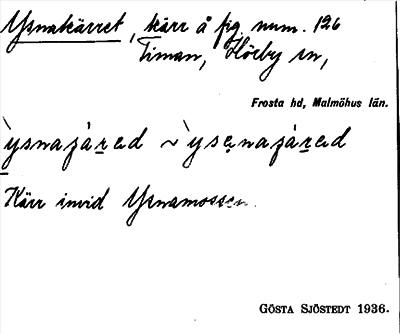 Ysnakärret, kärr å fig. num. 126
Timan, Hörby sn,
Frosta hd, Malmöhus län.
`ysnajȧṟɛd ~ `ysənajȧṟɛd
Kärr invid Ysnamossen.
GÖSTA SJÖSTEDT 1936.